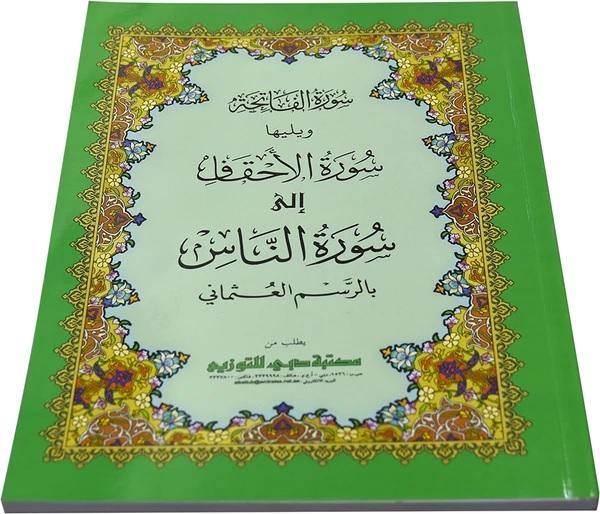 سُورَة الفَاتِحَة
ويليها
سُورَة الأَحْقَاف
إلى
سُورَة النَّاسِ
بالرَّسم العُثماني
يطلب من
مكتبة دبي للتوزيع